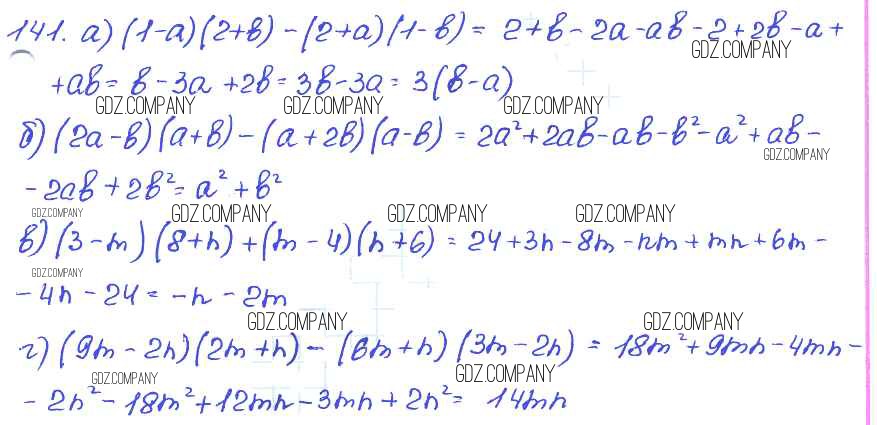 141. а) (1-а)(2+в) - (2+а)(1-в) = 2+в - 2а - ав - 2 + 2в - а +
GDZ.COMPANY
+ ав = в - 3а + 2в = 3в - 3а = 3(в-а)
GDZ.COMPANY GDZ.COMPANY GDZ.COMPANY
б) (2а-в)(а+в) - (а+2в)(а-в) = 2а² + 2ав - ав - в² - а² + ав -
GDZ.COMPANY
- 2ав + 2в² = а² + в²
GDZ.COMPANY GDZ.COMPANY GDZ.COMPANY GDZ.COMPANY
в) (3-m)(8+n) + (m-4)(n+6) = 24 + 3n - 8m - nm + mn + 6m -
GDZ.COMPANY
- 4n - 24 = -n - 2m
GDZ.COMPANY GDZ.COMPANY
г) (9m - 2n)(2m+n) - (6m+n)(3m-2n) = 18m² + 9mn - 4mn -
GDZ.COMPANY GDZ.COMPANY
- 2n² - 18m² + 12mn - 3mn + 2n² = 14mn